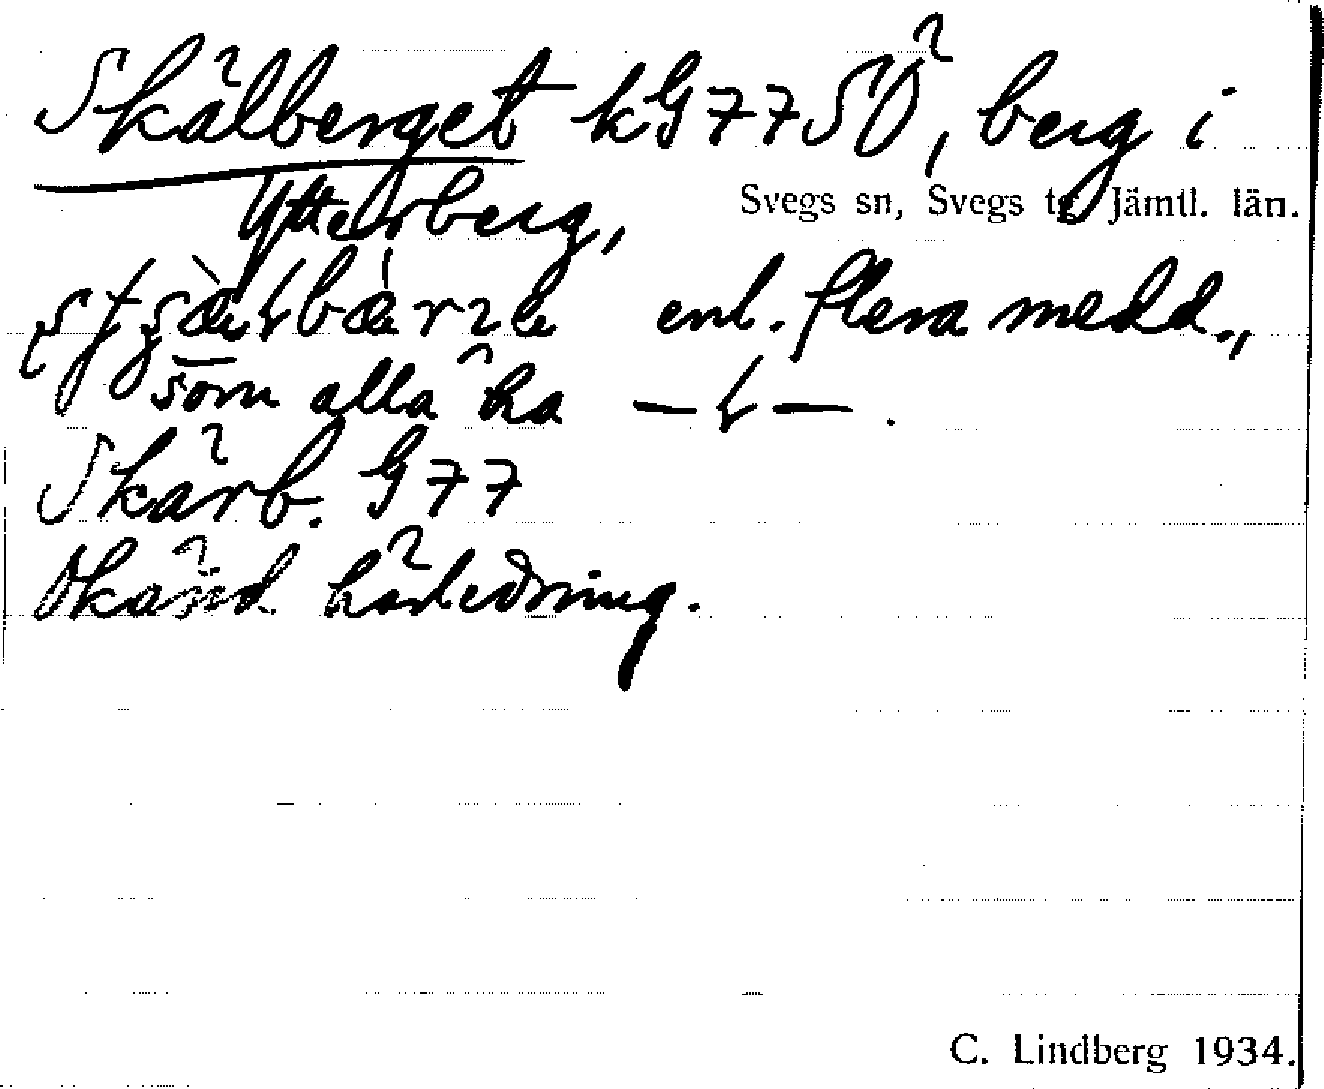 Skälberget kG77SÖ, berg i
Ytterberg,
Svegs sn, Svegs tg Jämtl. län.
enl. flera medd.,
som alla ha
Skärb. G77
Okänd härledning.
C. Lindberg 1934.